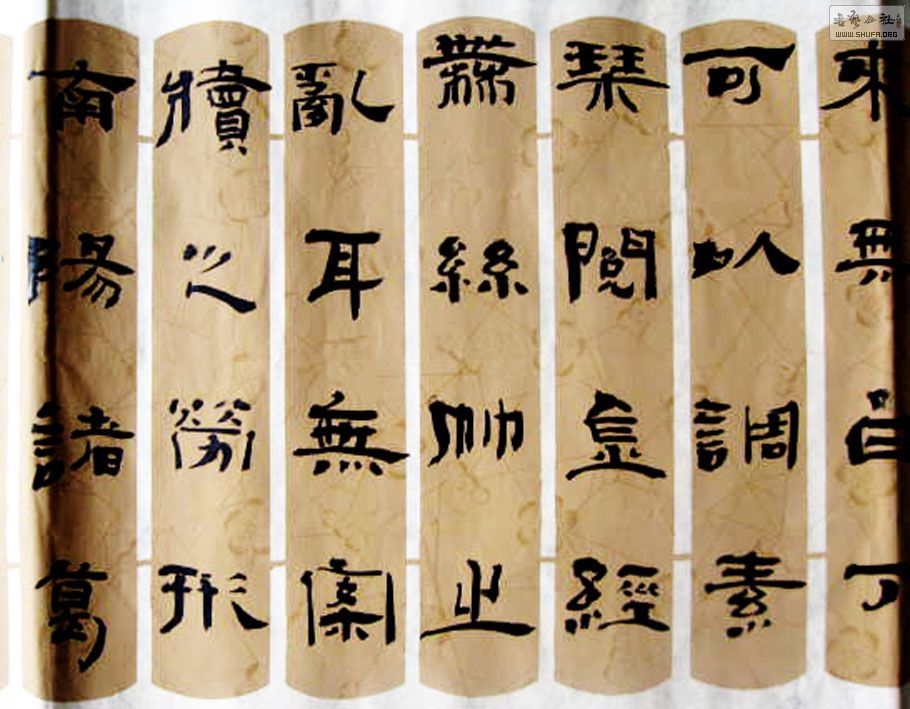 書藝公社
WWW.SHUFA.ORG
來無白丁
可以調素
琹閱金經
無絲竹之
亂耳無案
牘之勞形
南陽諸葛